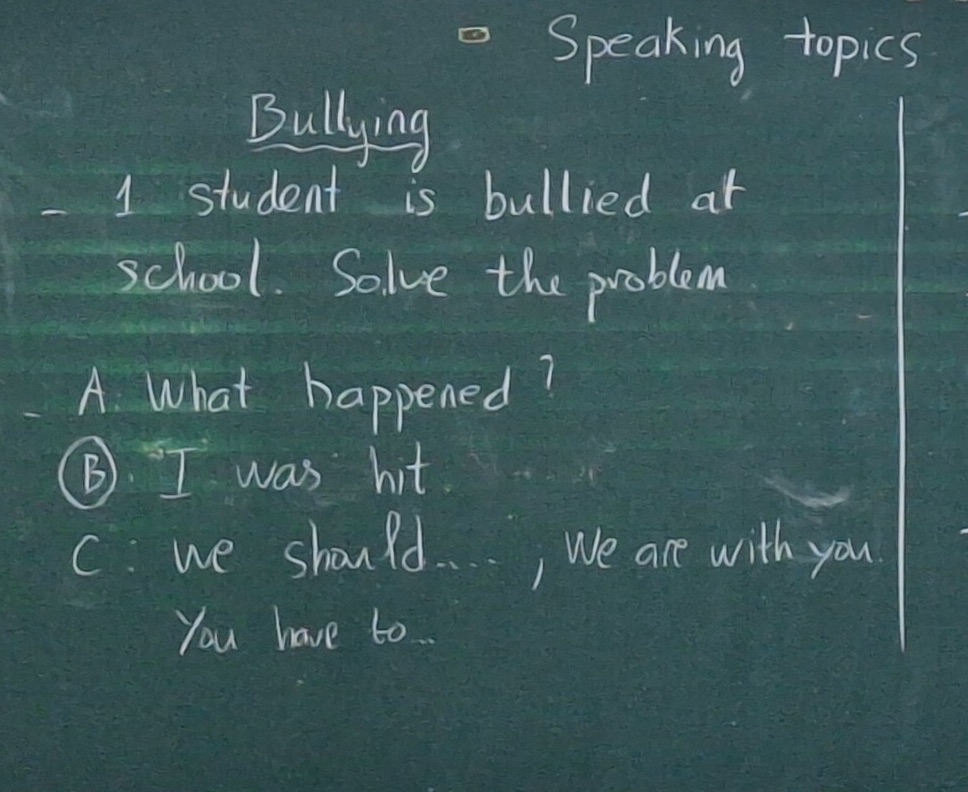 Speaking topics
Bullying
- 1 student is bullied at
school. Solve the problem.
- A: What happened?
B: I was hit
C: We should...., We are with you.
You have to...